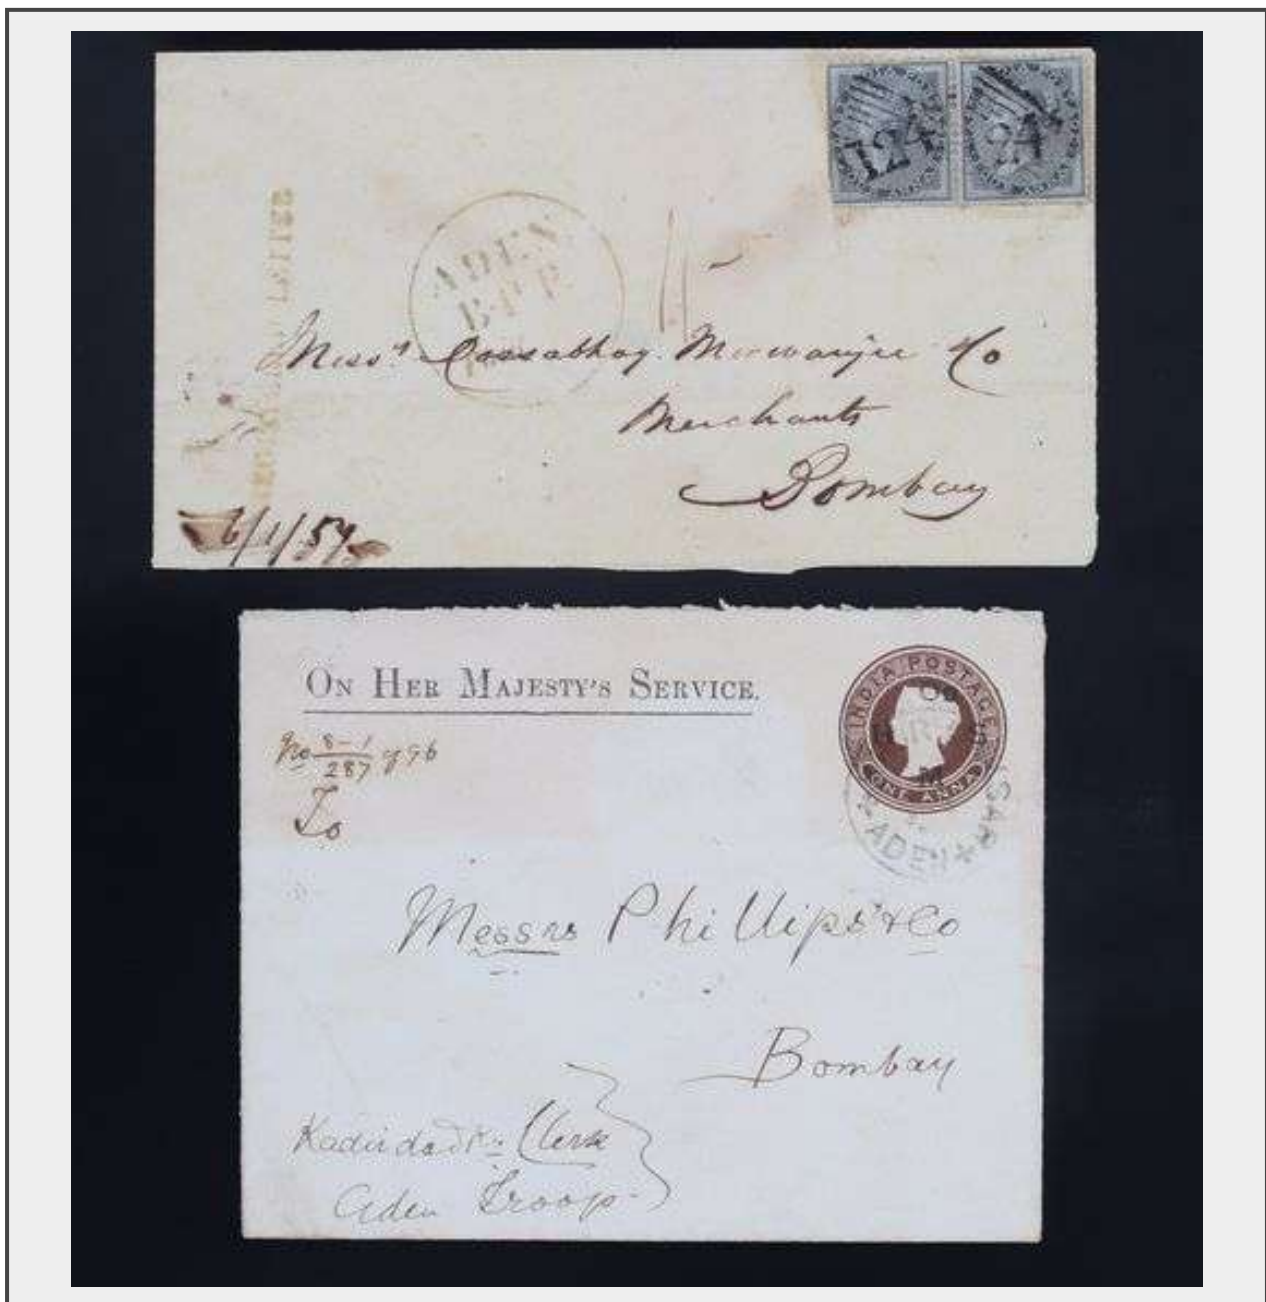 124
124
ADEN
Messrs Cossabhoy Merwanjee & Co
Merchants
Bombay
6/1/57
ON HER MAJESTY'S SERVICE.
INDIA POSTAGE
ONE ANNA
ADEN
No 8-1/287 of 96
To
Messrs Phillips & Co
Bombay
Clerk
Aden Troop